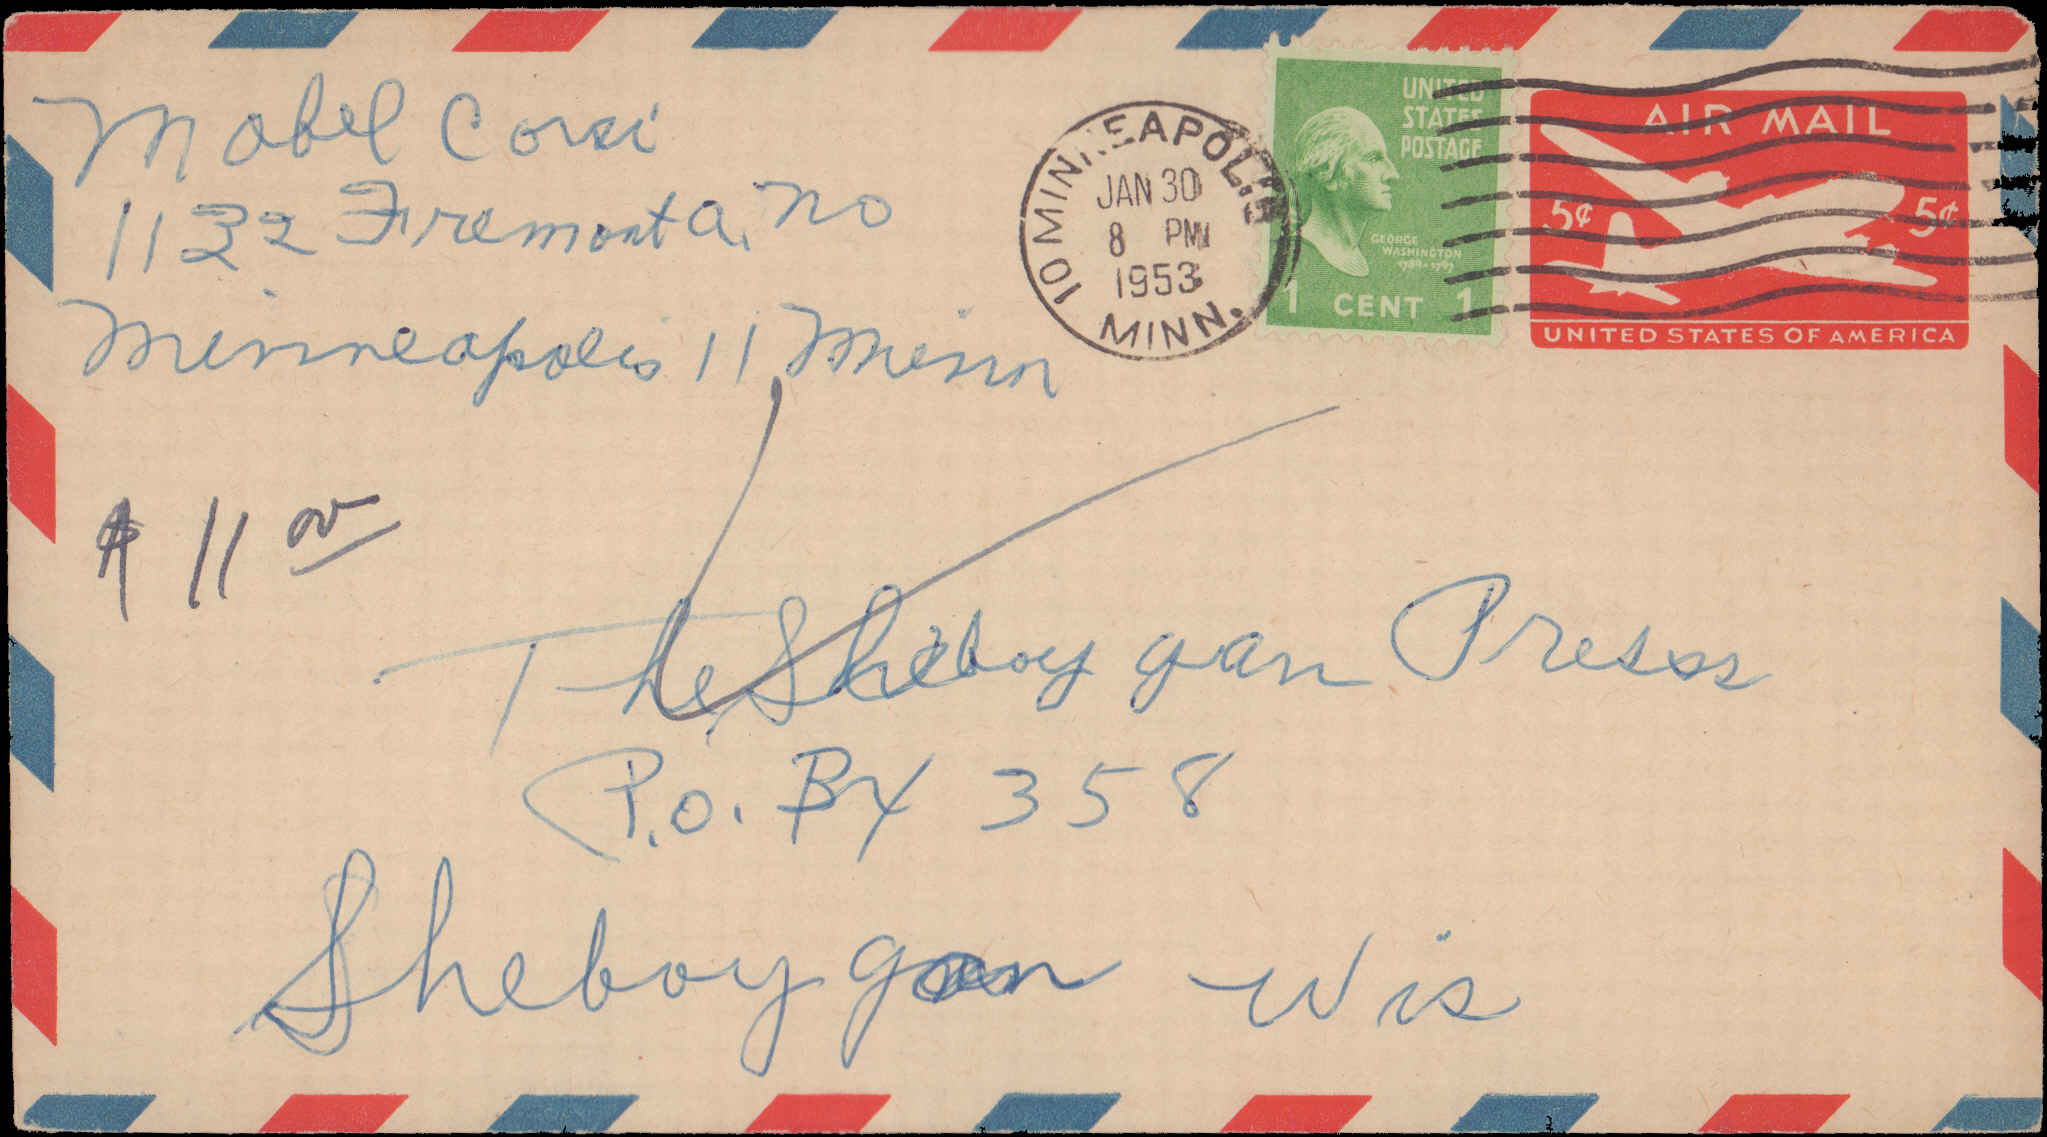 Mabel Corsi
1132 Fremont A. No
Minneapolis 11 Minn
$ 11 00
The Sheboygan Press
P.O. Bx 358
Sheboygan Wis
MINNEAPOLIS
JAN 30
8 PM
1953
10
MINN.
UNITED
STATES
POSTAGE
GEORGE
WASHINGTON
1789-1797
1 CENT 1
AIR MAIL
5¢ 5¢
UNITED STATES OF AMERICA